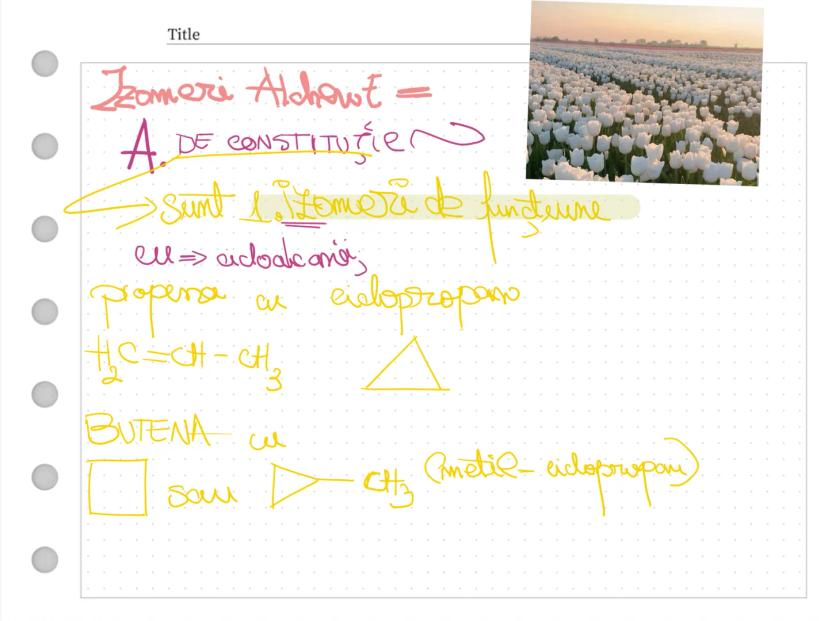 Title
Izomeri Alchene =
A. DE CONSTITUȚIE
Sunt 1. izomeri de funcțiune
cu => cicloalcanii;
propena cu ciclopropan
H2C=CH-CH3
BUTENA cu
sau CH3 (metil-ciclopropan)